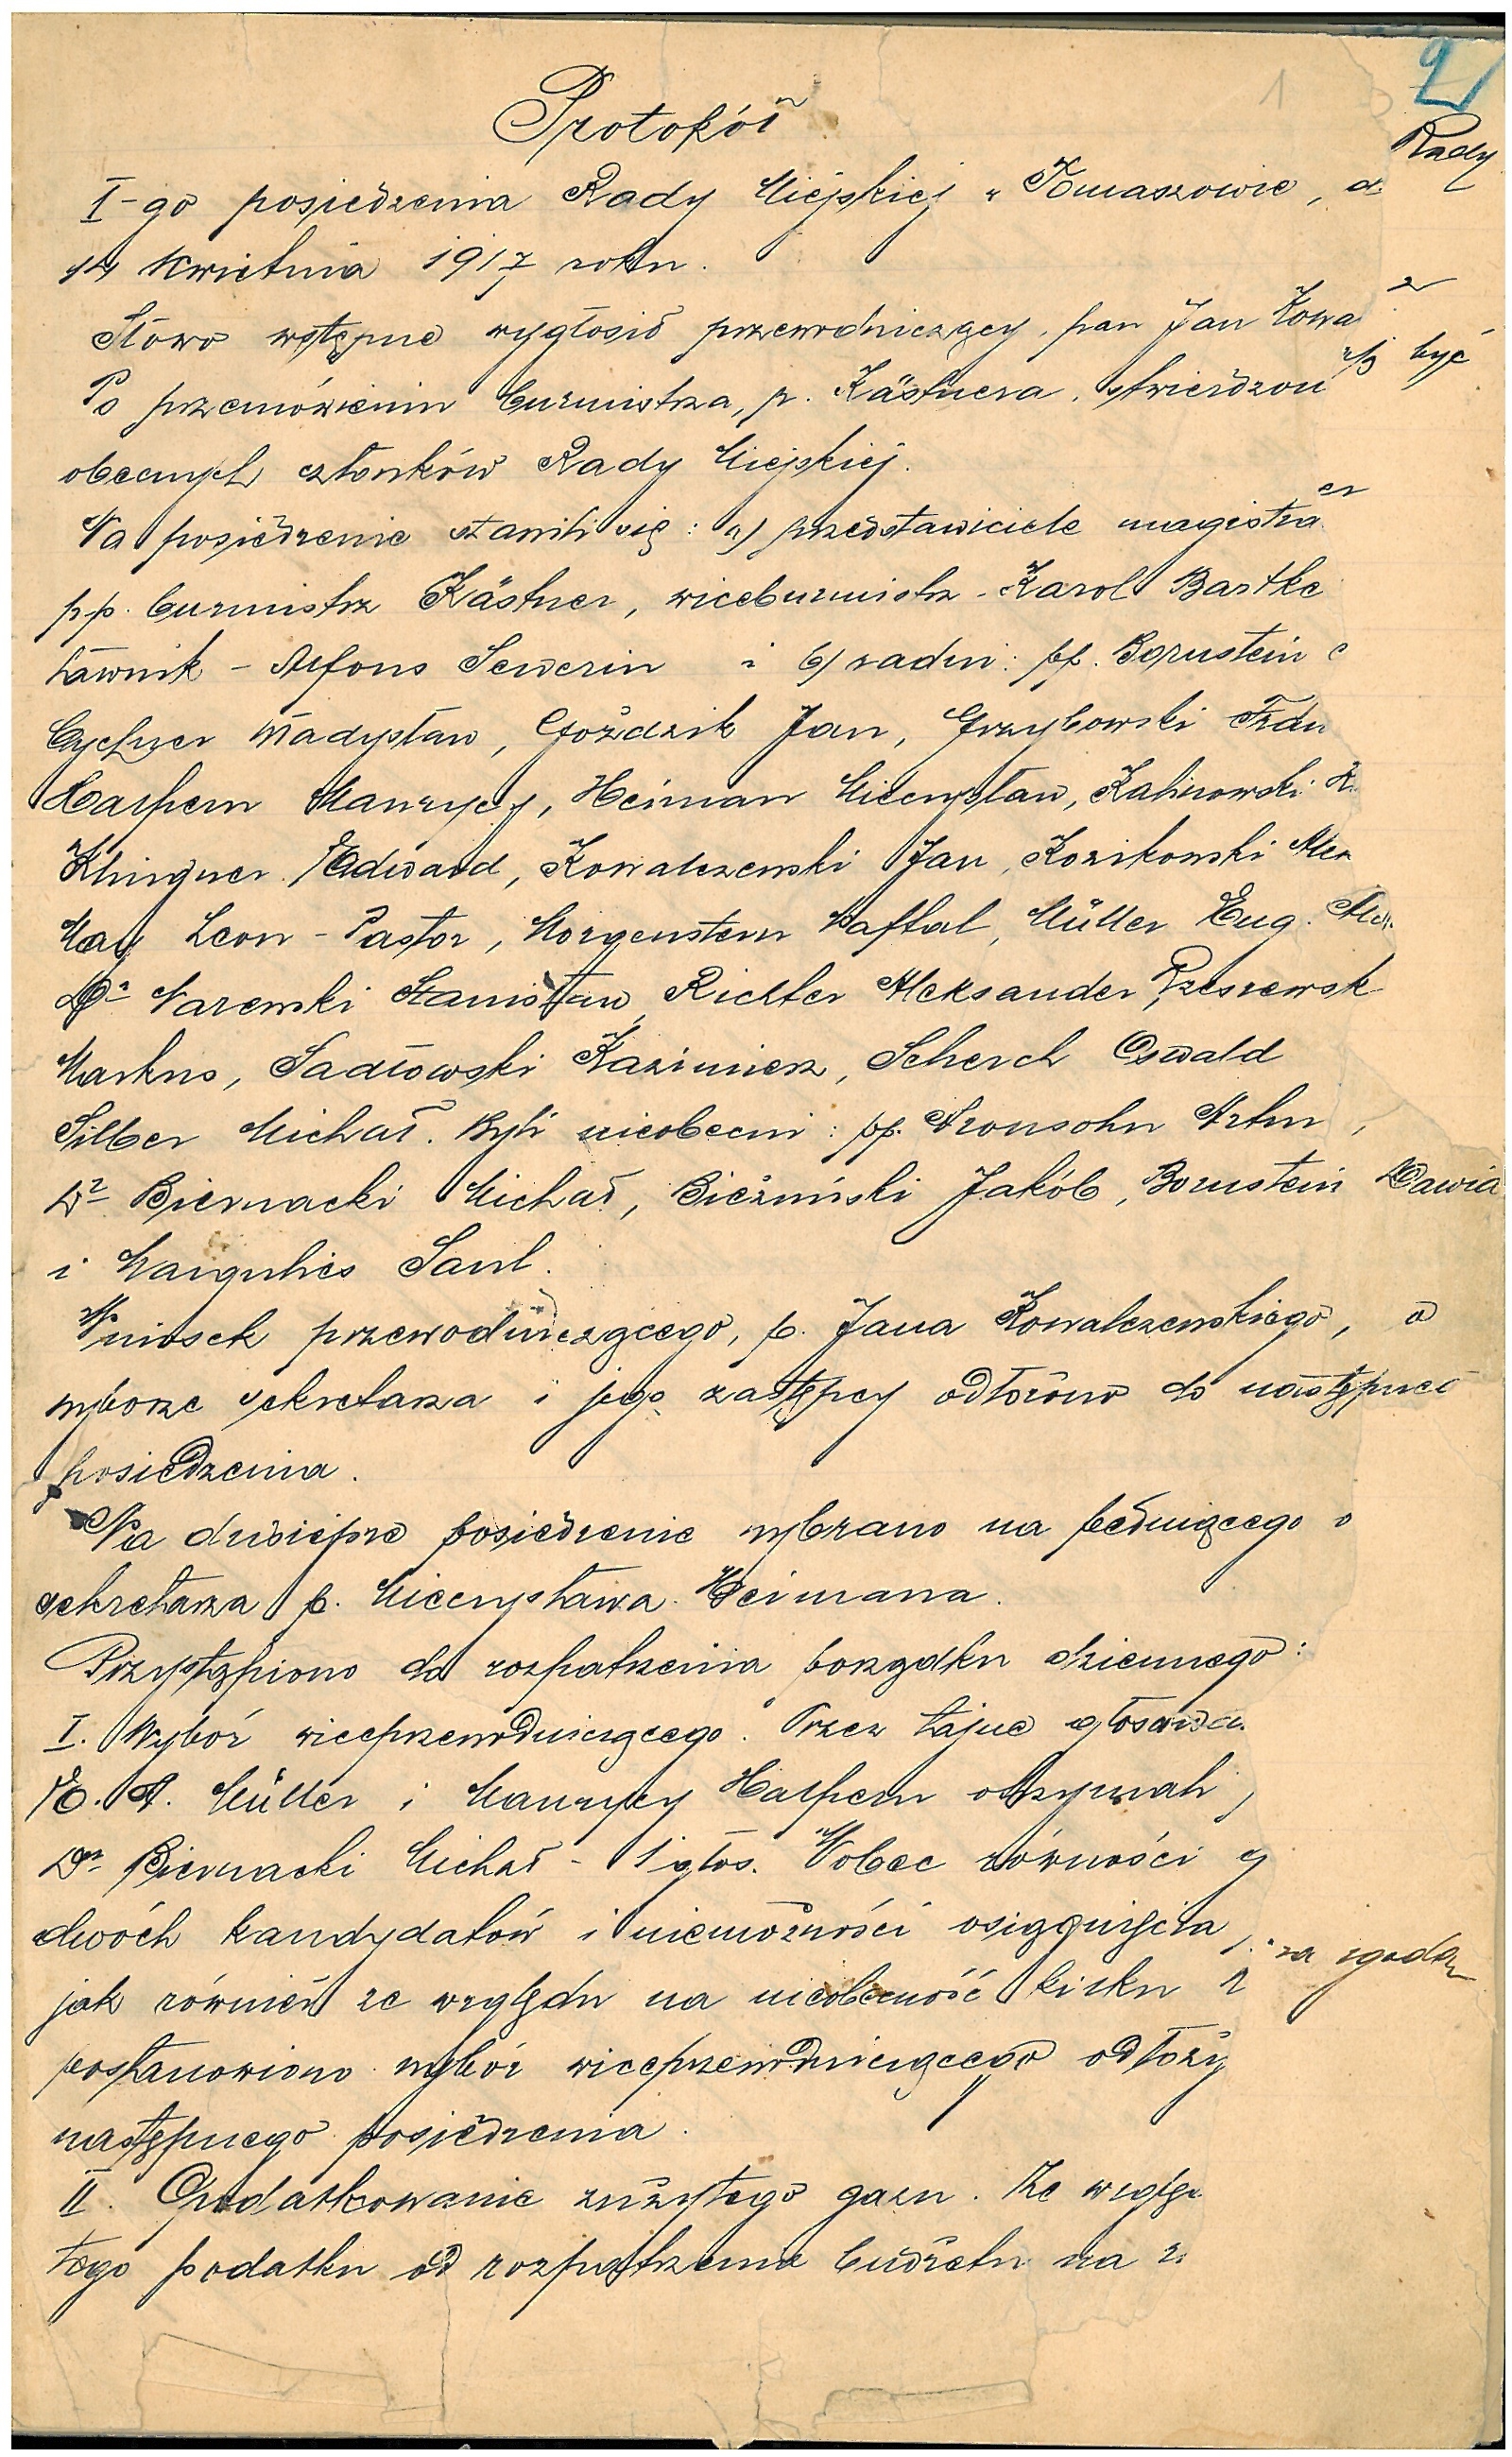 2
1
Protokół
Rady
I-go posiedzenia Rady Miejskiej w Tomaszowie, d.
14 Kwietnia 1917 roku.
Słowo wstępne wygłosił przewodniczący, pan Jan Kowa
być
Po przemówieniu burmistrza, p. Kästnera, stwierdzon
obecnych członków Rady Miejskiej.
Na posiedzenie stawili się: a) przedstawiciele magistra
pp. burmistrz Kästner, wiceburmistrz - Karol Bartke
Ławnik - Alfons Sewerin i b) radni: pp. Bornstein
Cychner Władysław, Goździk Jan, Grzybowski
Halpern Maurycy, Heiman Mieczysław, Kalinowski K.
Klingner Edward, Kowalczewski Jan, Kozikowski Alex
May Leon - Pastor, Morgenstern Naftal, Müller Eug.
Dr. Narewski Stanisław, Richter Aleksander, Rzeszewsk
Markus, Sadłowski Kazimierz, Scherch Oswald
Silber Michał. Byli nieobecni: pp. Aronsohn Artur,
Dr Biernacki Michał, Bieżuński Jakób, Bornstein Dawid
i Margulies Saul.
Wniosek przewodniczącego, p. Jana Kowalczewskiego, o
wyborze sekretarza i jego zastępcy odłożono do następne
posiedzenia.
Na dzisiejsze posiedzenie wybrano na pełniącego o
sekretarza p. Mieczysława Heimana.
Przystąpiono do rozpatrzenia porządku dziennego:
I. Wybór wiceprzewodniczącego. Przez tajne głosowa
E. A. Müller i Maurycy Halpern otrzymali
Dr. Biernacki Michał - 1 głos. Wobec równości g
dwóch kandydatów i niemożności osiągnięcia
za zgodą
jak również ze względu na nieobecność kilku
postanowiono wybór wiceprzewodniczącego odłoży
następnego posiedzenia.
II. Opodatkowanie zużytego gazu. Ze wzglę
tego podatku od rozpatrzenia budżetu na